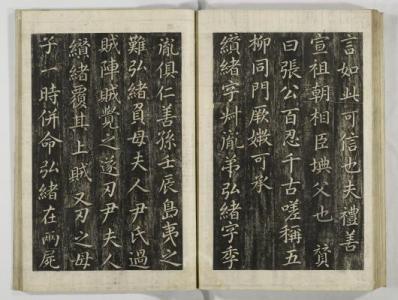 言如此可信也夫禮善
宣祖朝相臣父也
曰張公百忍千古嗟稱五
柳同門厥媺可承
纘緒字瀧弟弘緒字季
瀧俱仁善孫壬辰島夷之
難弘緒負母夫人尹氏過
賊陣賊覺之遂刃尹夫人
纘緒覆其上賊又刃之母
子一時併命弘緒在兩屍